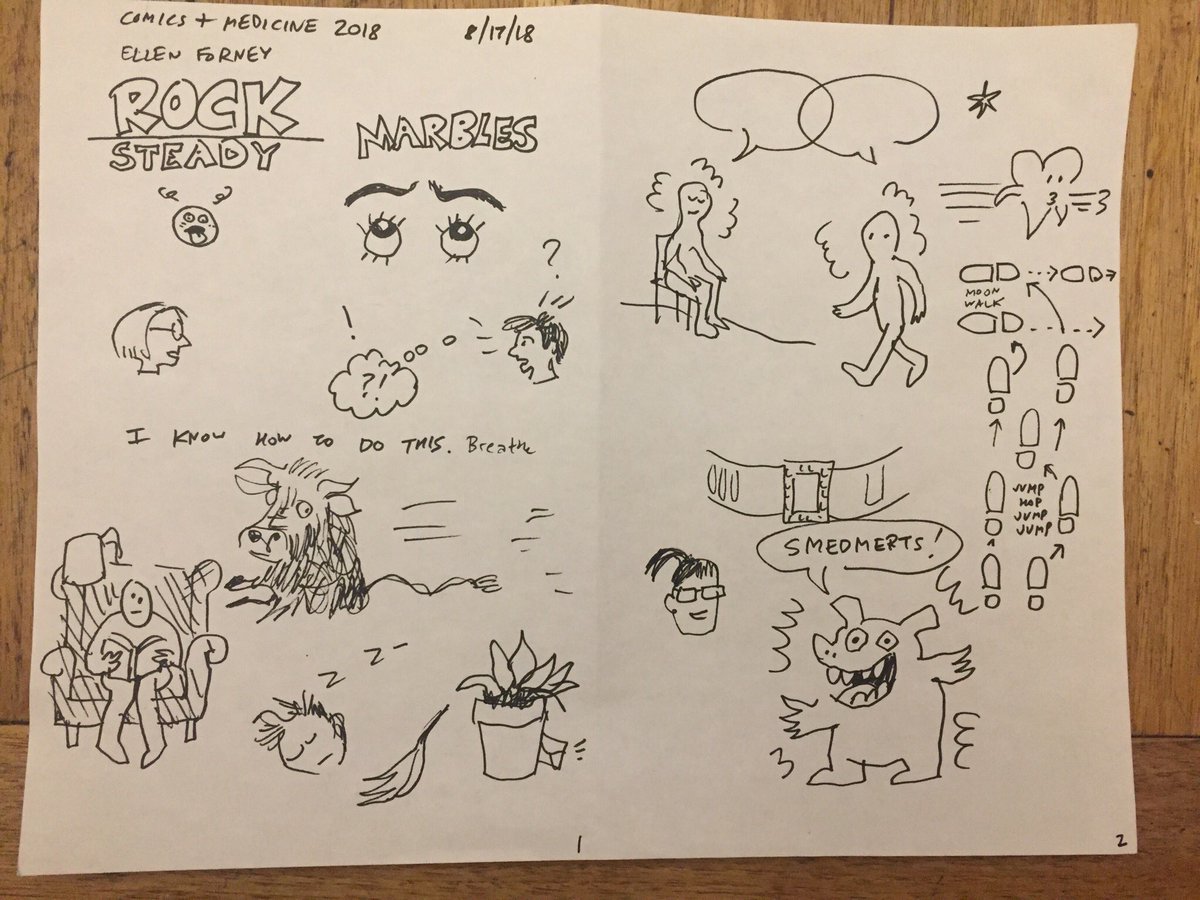 COMICS + MEDICINE 2018 8/17/18
ELLEN FORNEY
ROCK
STEADY
MARBLES
?
!
?!
I KNOW HOW TO DO THIS. Breathe
Z Z -
1
MOON
WALK
JUMP
HOP
JUMP
JUMP
SMEDMERTS!
2